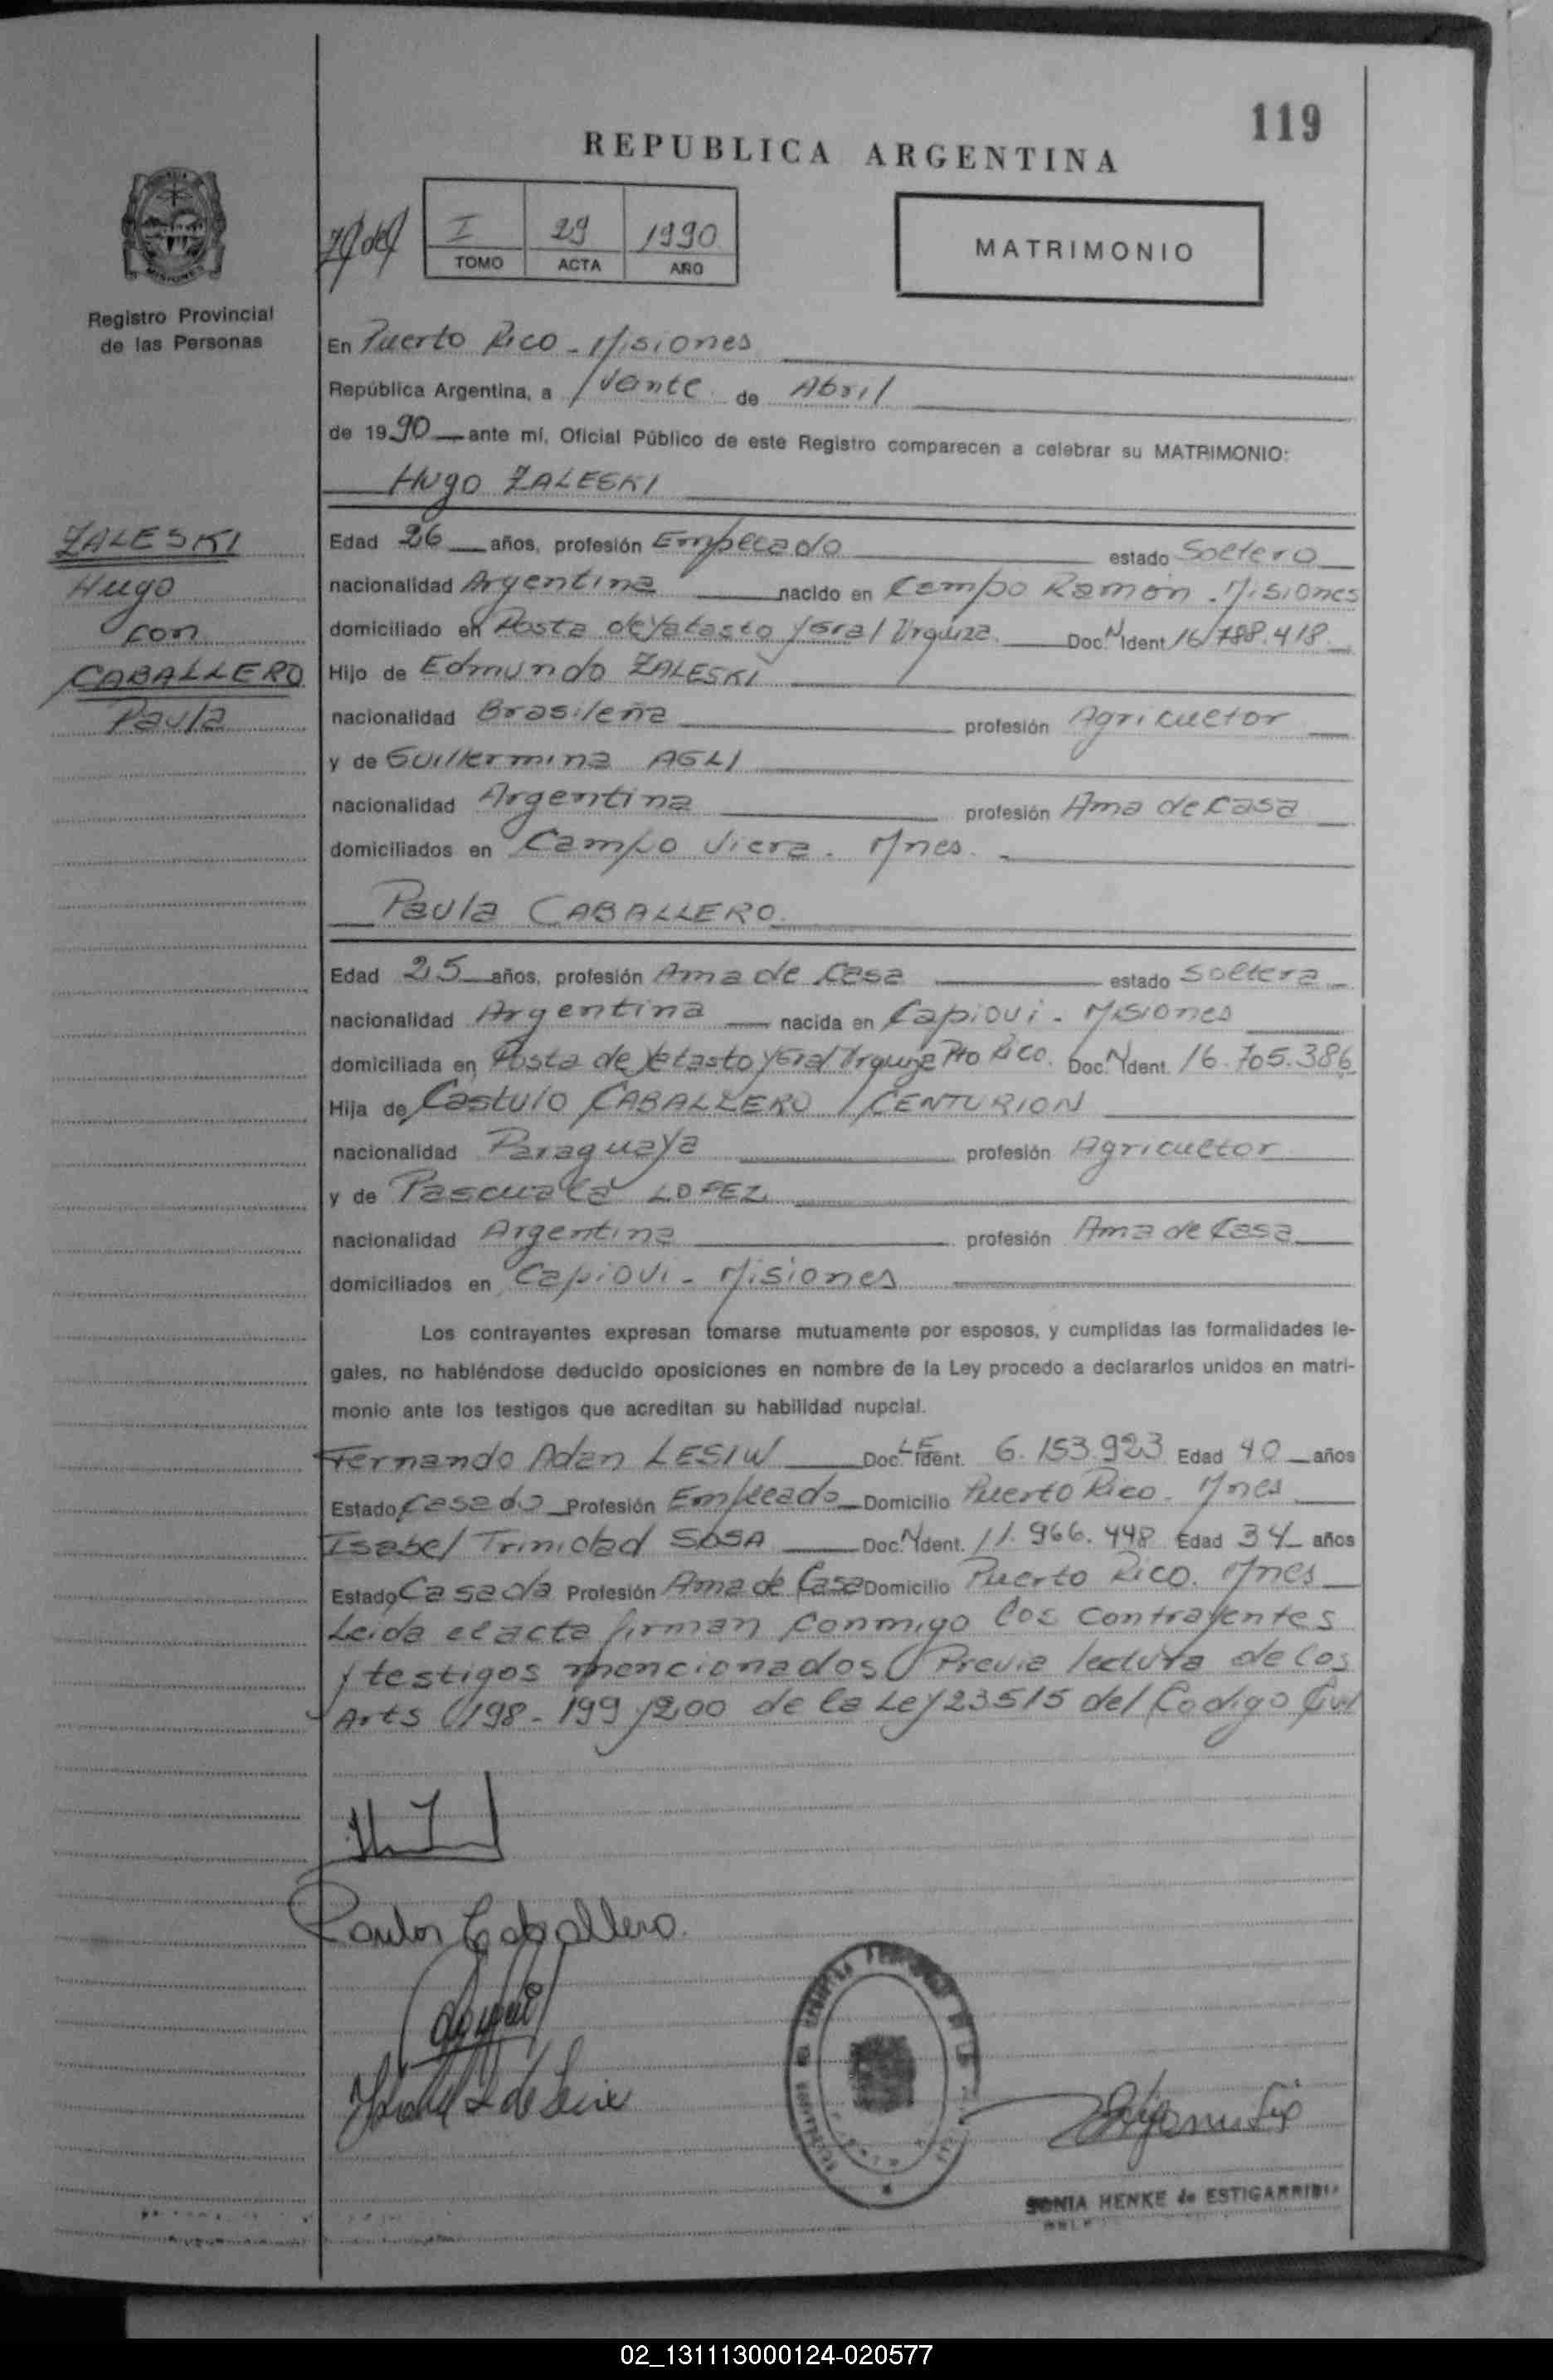 119
REPUBLICA ARGENTINA
I 29 1990
TOMO ACTA AÑO
MATRIMONIO
Registro Provincial
de las Personas
En Puerto Rico - Misiones
República Argentina, a Veinte de Abril
de 1990 ante mí, Oficial Público de este Registro comparecen a celebrar su MATRIMONIO:
Hugo ZALESKI
ZALESKI
Hugo
con
CABALLERO
Paula
Edad 26 años, profesión Empleado estado Soltero
nacionalidad Argentina nacido en Campo Ramón - Misiones
domiciliado en Posta de Yatasto y Gral Urquiza Doc. N Ident 16.788.418
Hijo de Edmundo ZALESKI
nacionalidad Brasileña profesión Agricultor
y de Guillermina AGLI
nacionalidad Argentina profesión Ama de Casa
domiciliados en Campo Viera - Mnes.
Paula CABALLERO
Edad 25 años, profesión Ama de Casa estado Soltera
nacionalidad Argentina nacida en Capiovi - Misiones
domiciliada en Posta de Yatasto y Gral Urquiza Pto Rico. Doc. N Ident. 16.705.386
Hija de Castulo CABALLERO / CENTURION
nacionalidad Paraguaya profesión Agricultor
y de Pascuala LOPEZ
nacionalidad Argentina profesión Ama de Casa
domiciliados en Capiovi - Misiones
Los contrayentes expresan tomarse mutuamente por esposos, y cumplidas las formalidades le-
gales, no habiéndose deducido oposiciones en nombre de la Ley procedo a declararlos unidos en matri-
monio ante los testigos que acreditan su habilidad nupcial.
Fernando Adan LESIW Doc. LE Ident. 6.153.923 Edad 40 años
Estado Casado Profesión Empleado Domicilio Puerto Rico - Mnes
Isabel Trinidad SOSA Doc. N Ident. 11.966.448 Edad 34 años
Estado Casada Profesión Ama de Casa Domicilio Puerto Rico. Mnes
Leida el acta firman conmigo los contrayentes
y testigos mencionados Previa lectura de los
Arts 198 - 199 y 200 de la Ley 23515 del Codigo Civil
Caballero
SONIA HENKE de ESTIGARRIBIA
02_131113000124-020577